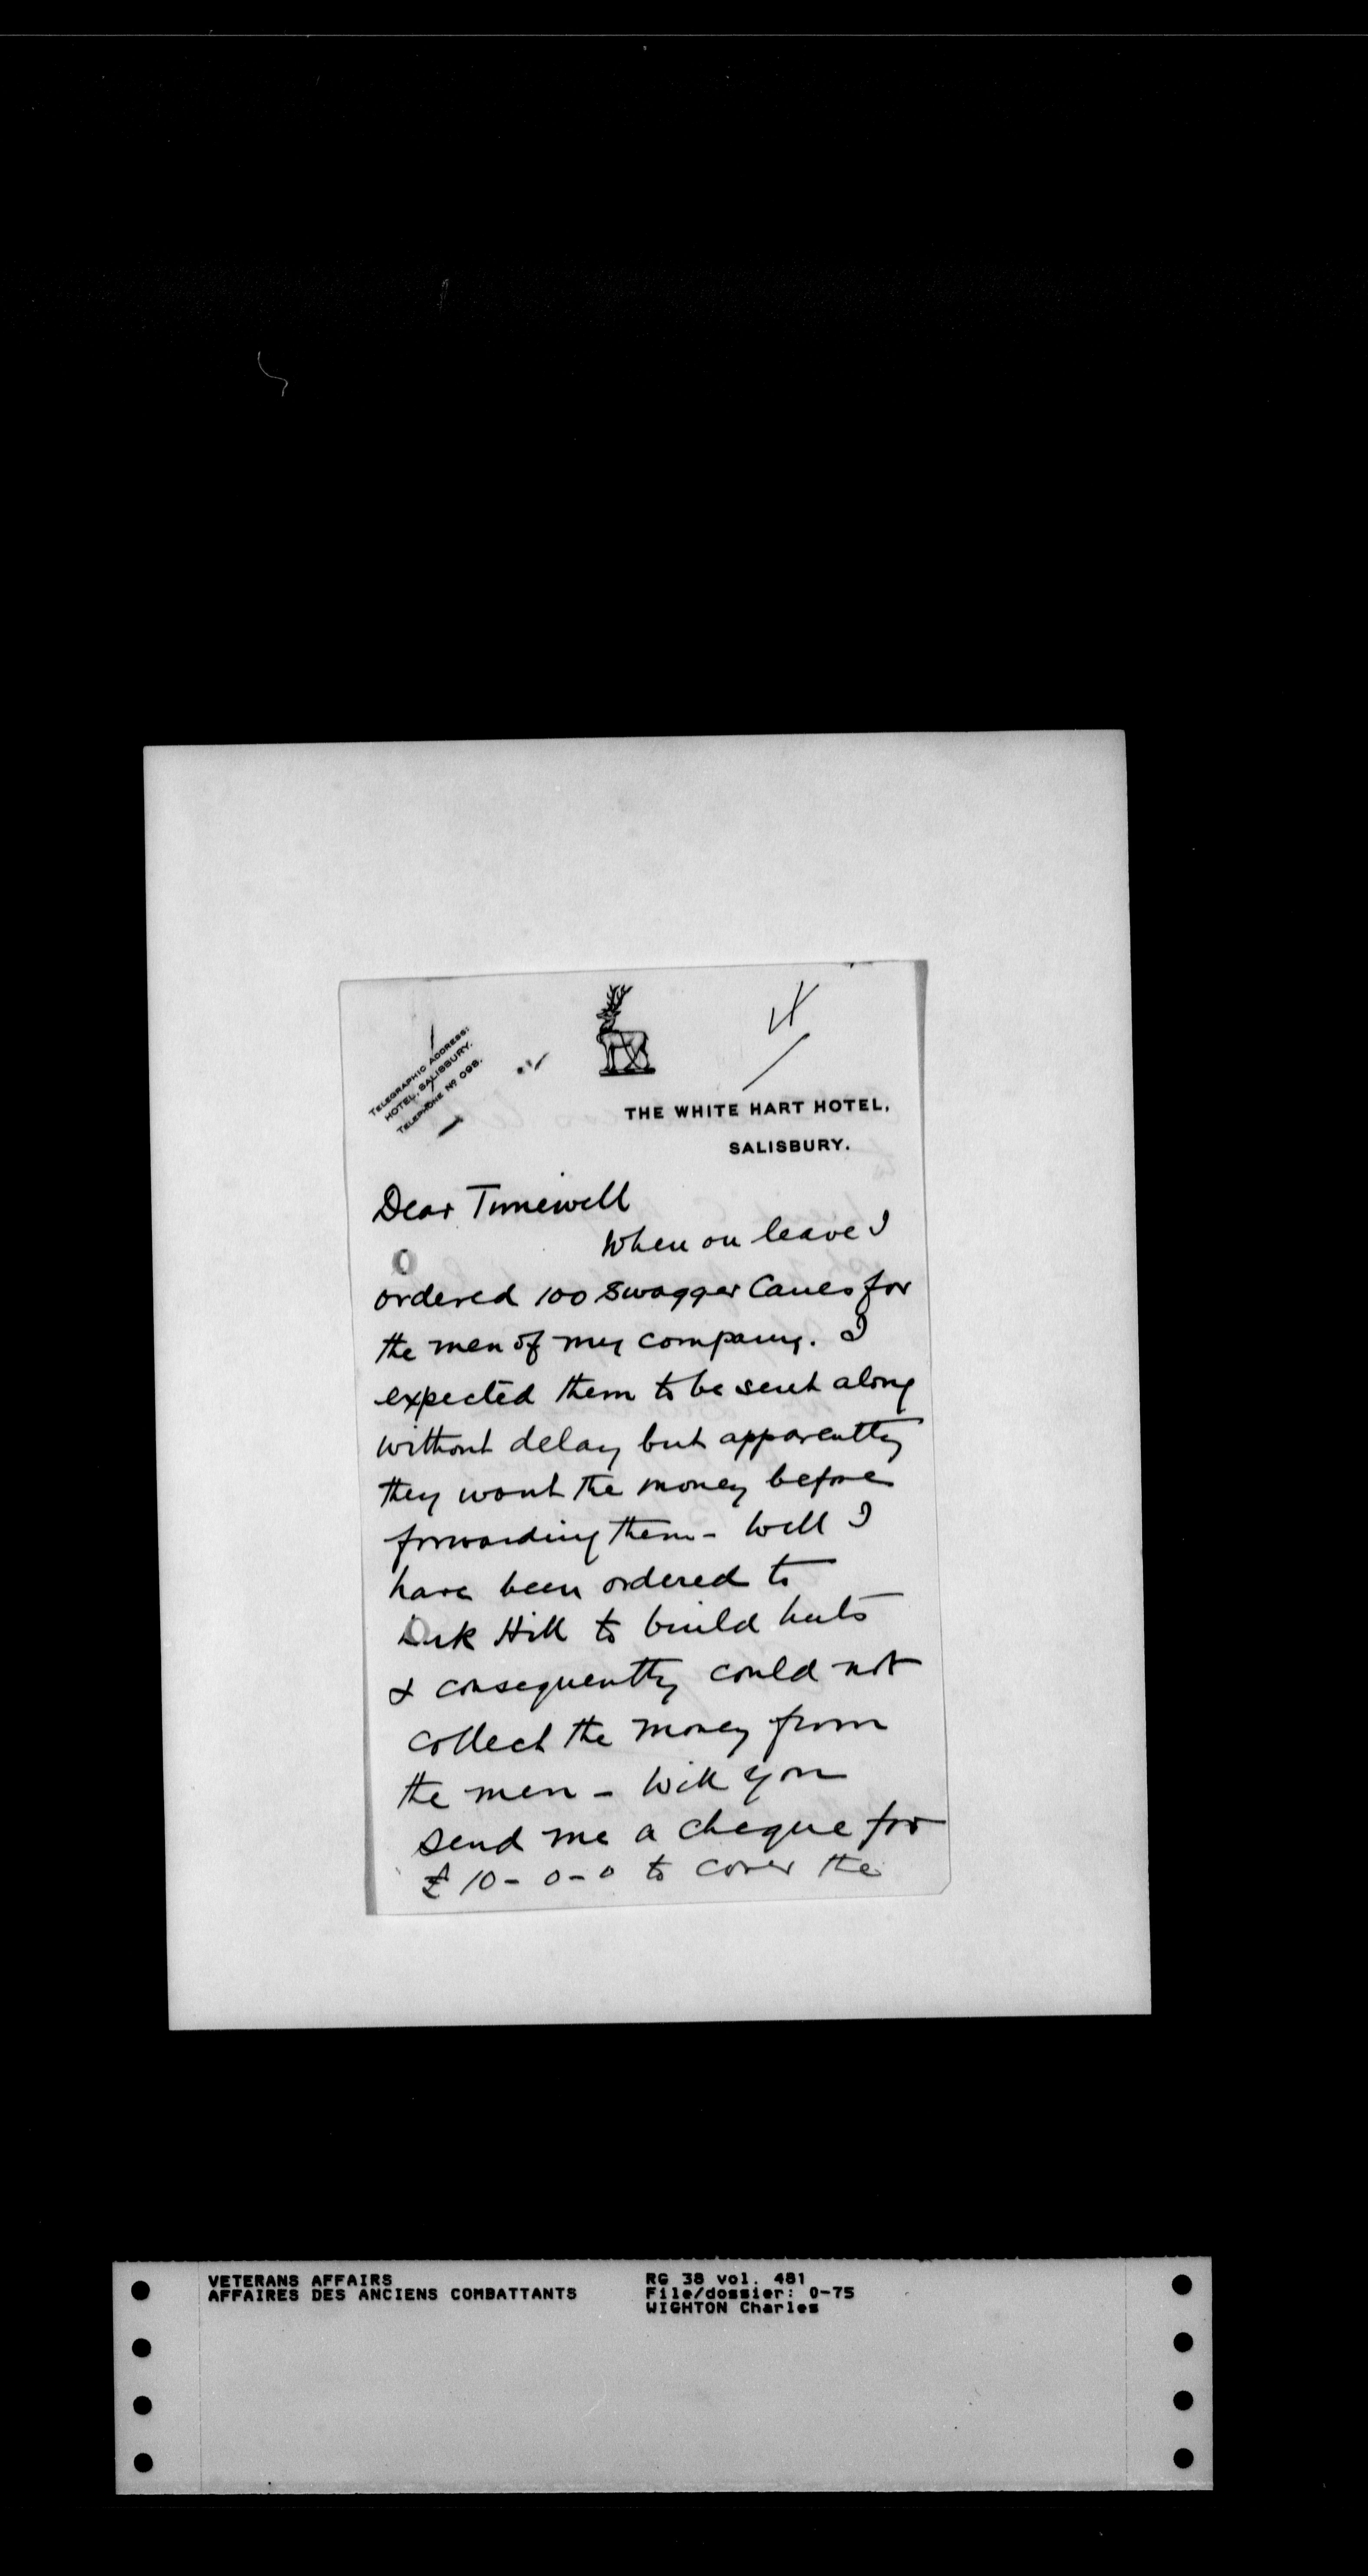 TELEGRAPHIC ADDRESS:
HOTEL, SALISBURY.
TELEPHONE Nº 098.
THE WHITE HART HOTEL,
SALISBURY.
Dear Timewell
When on leave I
ordered 100 Swagger Canes for
the men of my company. I
expected them to be sent along
without delay but apparently
they want the money before
forwarding them - Well I
have been ordered to
Lark Hill to build huts
& consequently could not
collect the money from
the men - Will you
send me a cheque for
£10-0-0 to cover the
VETERANS AFFAIRS
AFFAIRES DES ANCIENS COMBATTANTS
RG 38 vol. 481
File/dossier: 0-75
WIGHTON Charles